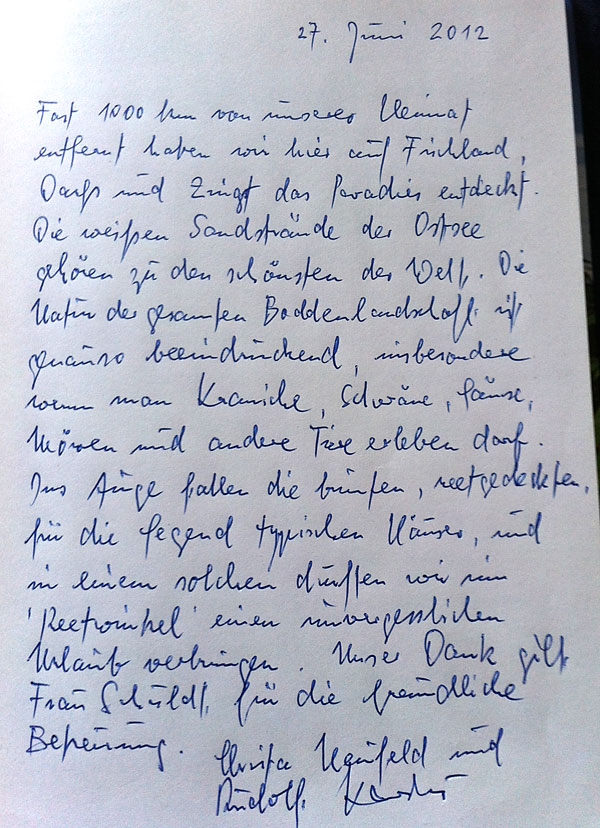 27. Juni 2012
Fast 1000 km von unserer Heimat
entfernt haben wir hier auf Fischland,
Darß und Zingst das Paradies entdeckt.
Die weißen Sandstrände der Ostsee
gehören zu den schönsten der Welt. Die
Natur der gesamten Boddenlandschaft ist
genauso beeindruckend, insbesondere
wenn man Kraniche, Schwäne, Gänse,
Möwen und andere Tiere erleben darf.
Ins Auge fallen die bunten, reetgedeckten,
für die Gegend typischen Häuser, und
in einem solchen durften wir im
'Reetwinkel' einen unvergesslichen
Urlaub verbringen. Unser Dank gilt
Frau Schuldt für die freundliche
Betreuung.
Christa und
Rudolf